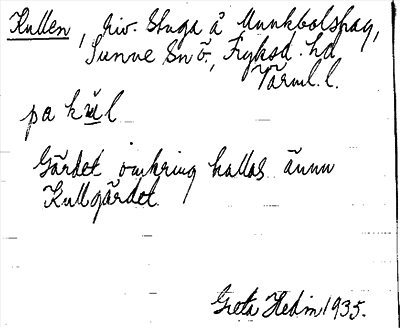 Kullen, riv. stuga å Munkbolspag,
Sunne Snö., Fryksd. hd
Värml. l.
pa kul
Gärdet omkring kallas ännu
Kullgärdet.
Greta Hedin 1935.